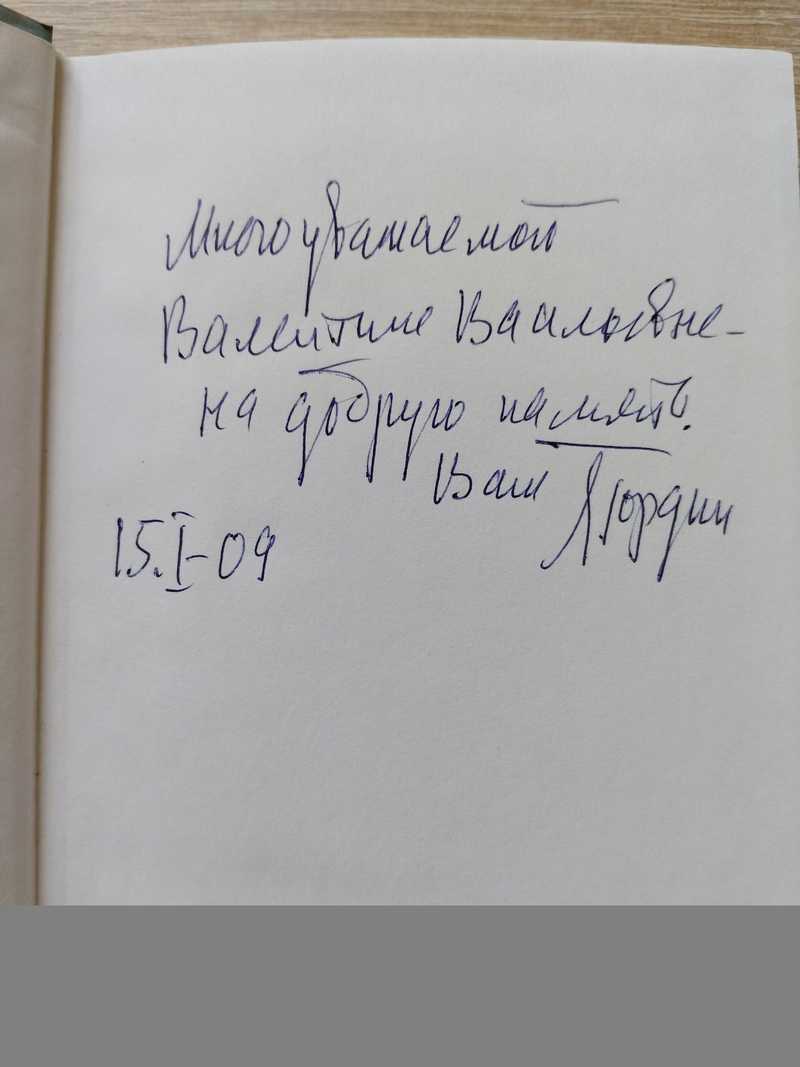 Многоуважаемой
Валентине Васильевне -
на добрую память.
Ваш ЯГордин
15.I-09